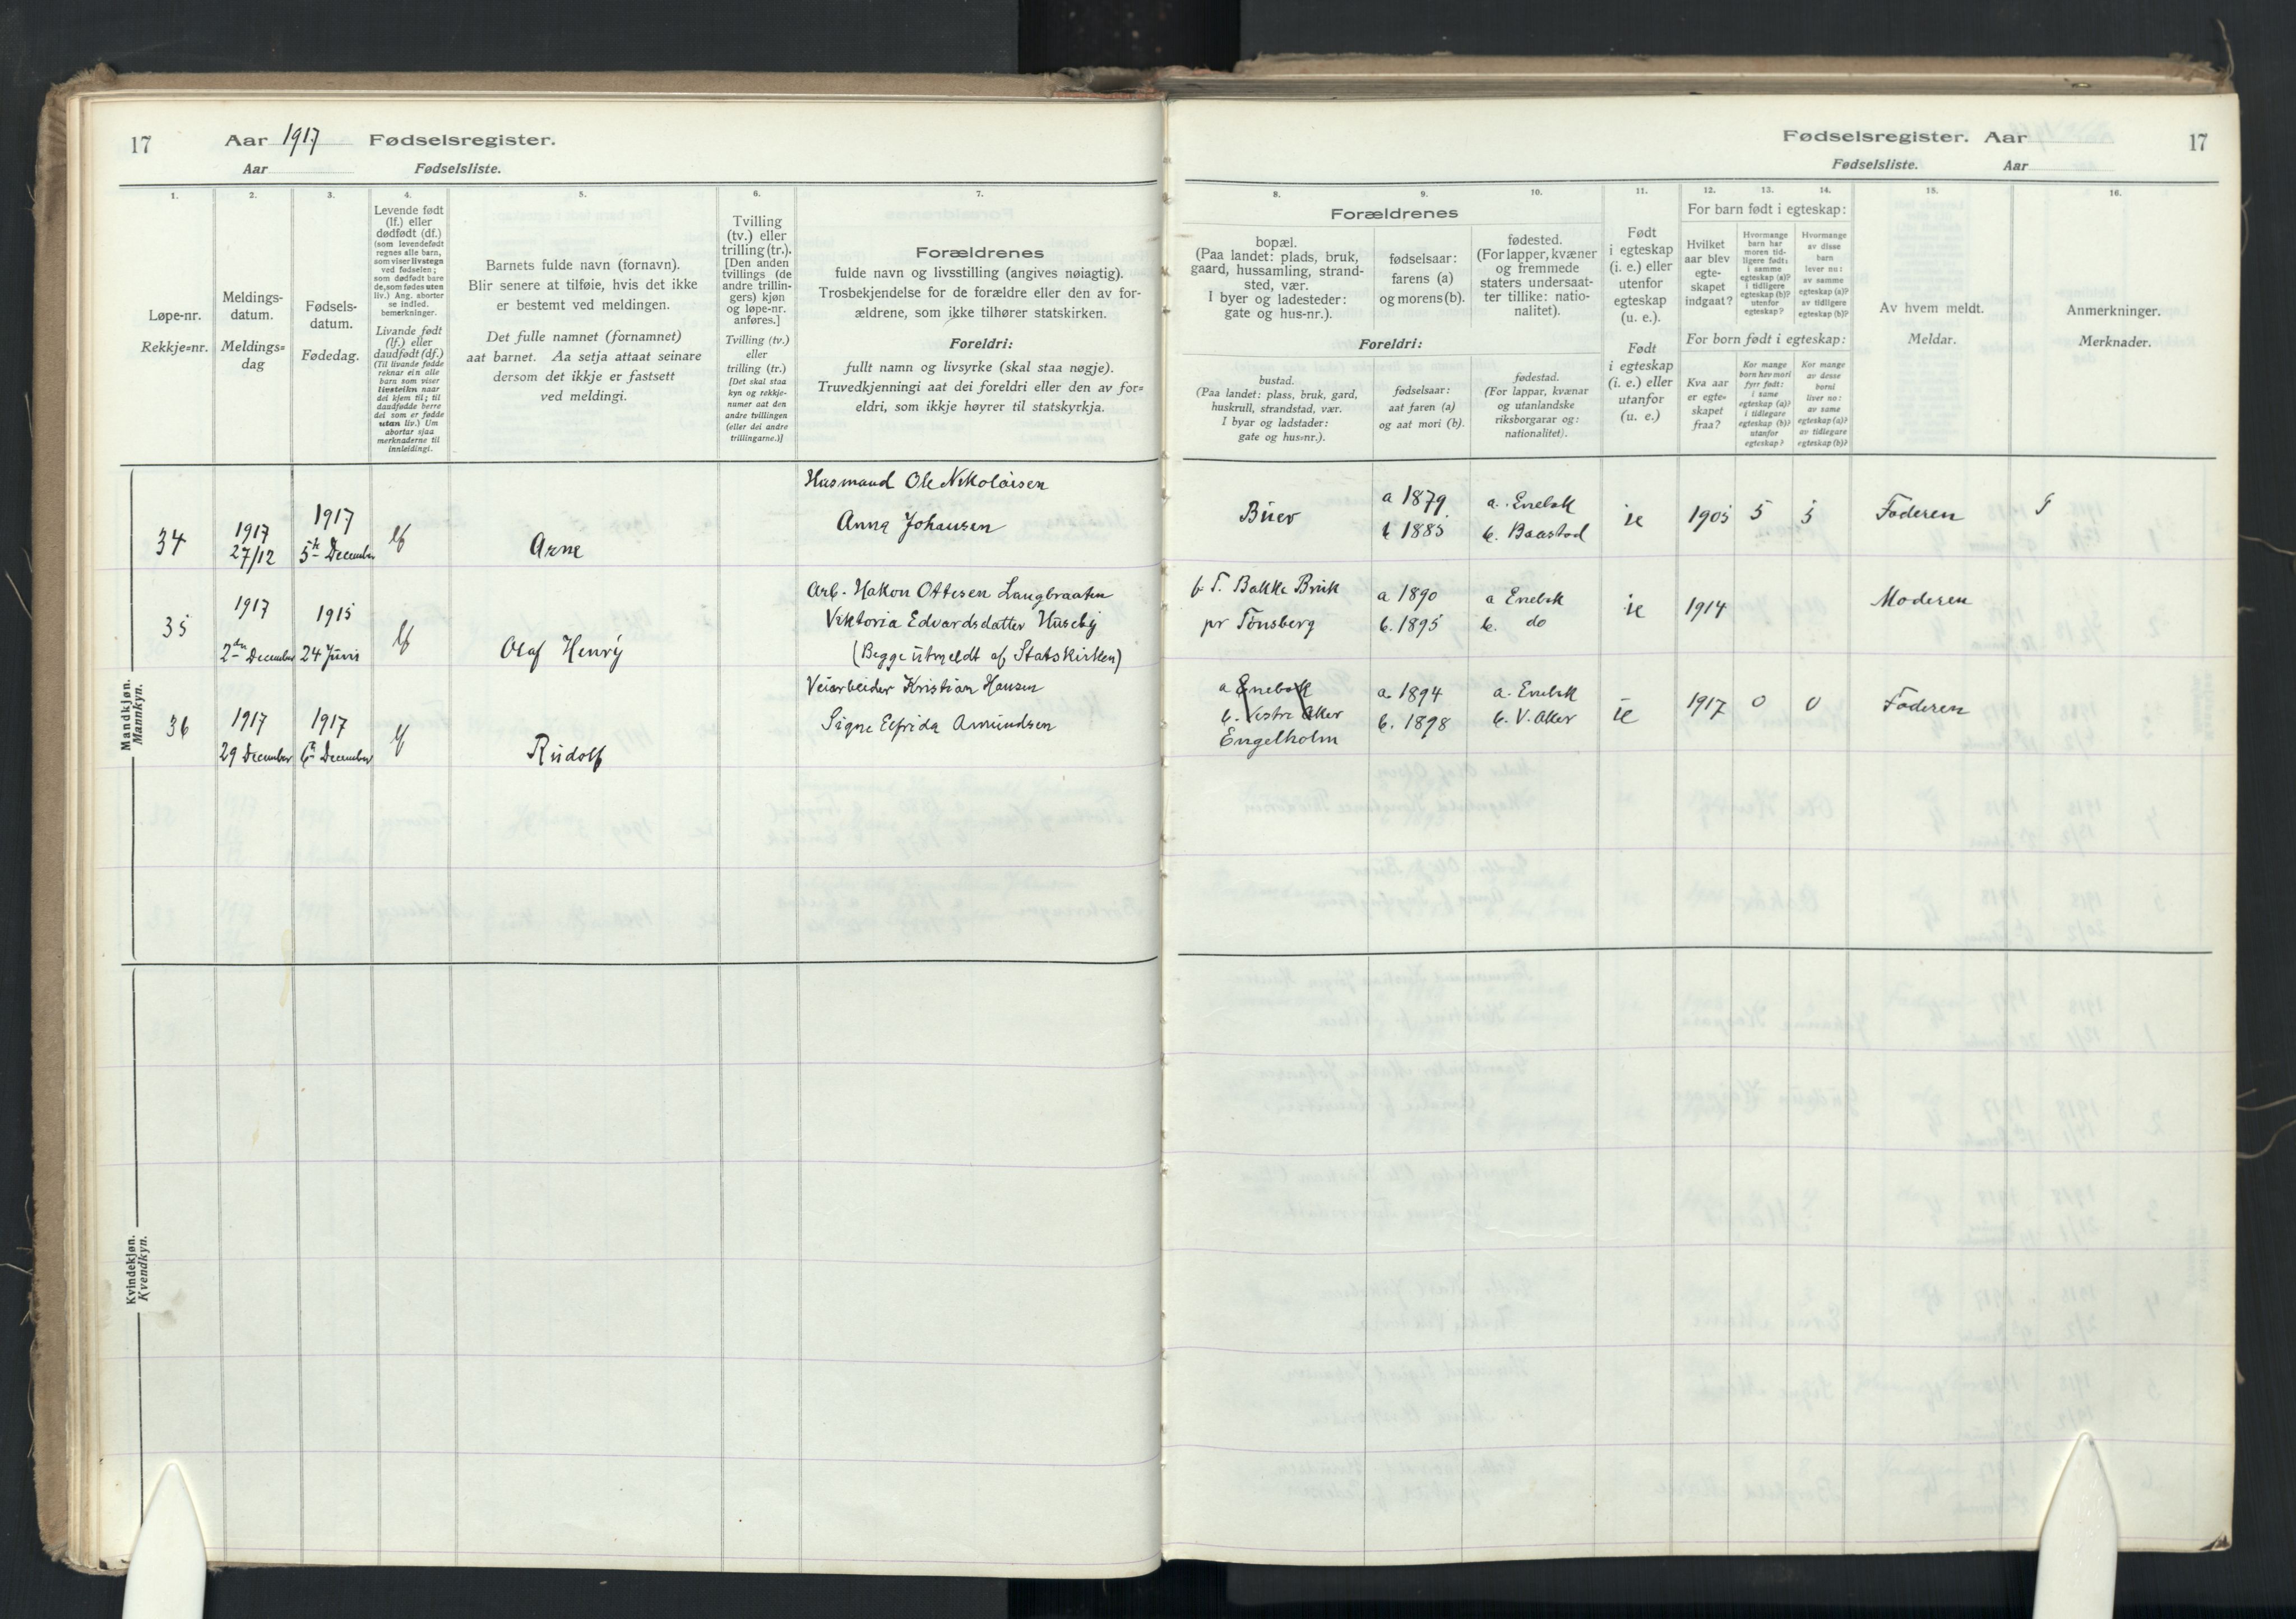 17
Aar 1917 Fødselsregister.
Aar Fødselsliste.
1.
2.
3.
4.
5.
6.
7.
Løpe-nr.
Rekkje=nr.
Meldings-
datum.
Meldings=
dag
Fødsels-
datum.
Fødedag.
Levende født
(lf.) eller
dødfødt (df.)
(som levendefødt
regnes alle barn,
som viser livstegn
ved fødselen;
som dødfødt bare
de, som fødes uten
liv.) Ang. aborter
se indled.
bemerkninger.
Livande født
(lf.) eller
daudfødt (df.)
(Til livande fødde
reknar ein alle
barn som viser
livsteikn naar
dei kjem til; til
daudfødde berre
dei som er fødde
utan liv.) Um
abortar sjaa
merknaderne til
innleidingi.
Barnets fulde navn (fornavn).
Blir senere at tilføie, hvis det ikke
er bestemt ved meldingen.
Det fulle namnet (fornamnet)
aat barnet. Aa setja attaat seinare
dersom det ikkje er fastsett
ved meldingi.
Tvilling
(tv.) eller
trilling (tr.).
[Den anden
tvillings (de
andre trillin-
gers) kjøn
og løpe-nr.
anføres.]
Tvilling (tv.)
eller
trilling (tr.)
[Det skal staa
kyn og rekkje-
numer aat den
andre tvillingen
(eller dei andre
trillingarne.)]
Forældrenes
fulde navn og livsstilling (angives nøiagtig).
Trosbekjendelse for de forældre eller den av for-
ældrene, som ikke tilhører statskirken.
Foreldri:
fullt namn og livsyrke (skal staa nøgje).
Truvedkjenningi aat dei foreldri eller den av for=
eldri, som ikkje høyrer til statskyrkja.
Mandkjøn.
Mannkyn.
34
1917
27/12
1917
5te December
lf
Arne
Husmand Ole Nikolaisen
Anna Johansen
35
1917
2den December
1915
24 Juni
lf
Olaf Henry
Arb. Hakon Ottesen Langbraaten
Viktoria Edvardsdatter Huseby
(Begge utmeldt af Statskirken)
36
1917
29 December
1917
6te December
lf
Rudolf
Veiarbeider Kristian Hansen
Signe Elfrida Amundsen
Kvindekjøn.
Kvendkyn.
Fødselsregister. Aar
17
Fødselsliste. Aar
8.
9.
10.
11.
12.
13.
14.
15.
16.
Forældrenes
bopæl.
(Paa landet: plads, bruk,
gaard, hussamling, strand-
sted, vær.
I byer og ladesteder:
gate og hus-nr.).
fødselsaar:
farens (a)
og morens (b).
fødested.
(For lapper, kvæner
og fremmede
staters undersaat-
ter tillike: natio-
nalitet).
Foreldri:
bustad.
(Paa landet: plass, bruk, gard,
huskrull, strandstad, vær.
I byar og ladstader:
gate og hus=nr.).
fødselsaar:
aat faren (a)
og aat mori (b).
fødestad.
(For lappar, kvænar
og utanlandske
riksborgarar og:
nationalitet).
Født
i egteskap
(i. e.) eller
utenfor
egteskap
(u. e.).
Født
i egteskap
(i. e.) eller
utanfor
(u. e.)
For barn født i egteskap:
Hvilket
aar blev
egte-
skapet
indgaat?
Hvormange
barn har
moren tid-
ligere født:
i samme
egteskap (a)?
i tidligere
egteskap (b)?
utenfor
egteskap?
Hvormange
av disse
barn
lever nu:
av samme
egteskap (a)?
av tidligere
egteskap (b)?
For born født i egteskap:
Kva aar
er egte=
skapet
fraa?
Kor mange
born hev mori
fyrr født:
i same
egteskap (a)?
i tidlegare
egteskap (b)?
utanfor
egteskap?
Kor mange
av desse
borni
liver no:
av same
egteskap (a)?
av tidlegare
egteskap (b)?
Av hvem meldt.
Meldar.
Anmerkninger.
Merknader.
Buer
a 1879
b 1885
a. Enebak
b. Baastad
ie
1905
5
5
Faderen
f. T. Bakke Bruk
pr Tønsberg
a 1890
b. 1895
a Enebak
b. do
ie
1914
Moderen
a Enebak
b. Vestre Aker
Engelholm
a. 1894
b. 1898
a. Enebak
b. V. Aker
ie
1917
0
0
Faderen